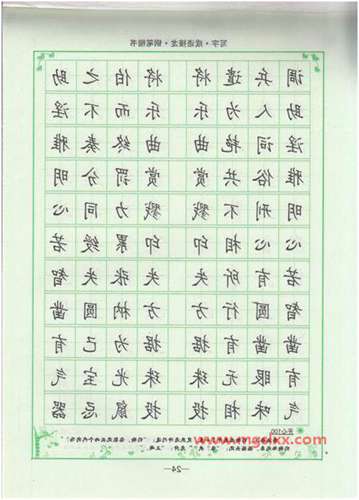 写字·成语接龙·钢笔楷书
调兵遣将将伯之助
助人为乐乐而不淫
淫词艳曲曲终奏雅
雅俗共赏赏罚分明
明刑不戮戮力同心
心心相印印累绶若
若有所失失张失智
智圆行方方枘圆凿
凿凿有据据为己有
有眼无珠珠光宝气
气味相投投鼠忌器
开心100
—24—